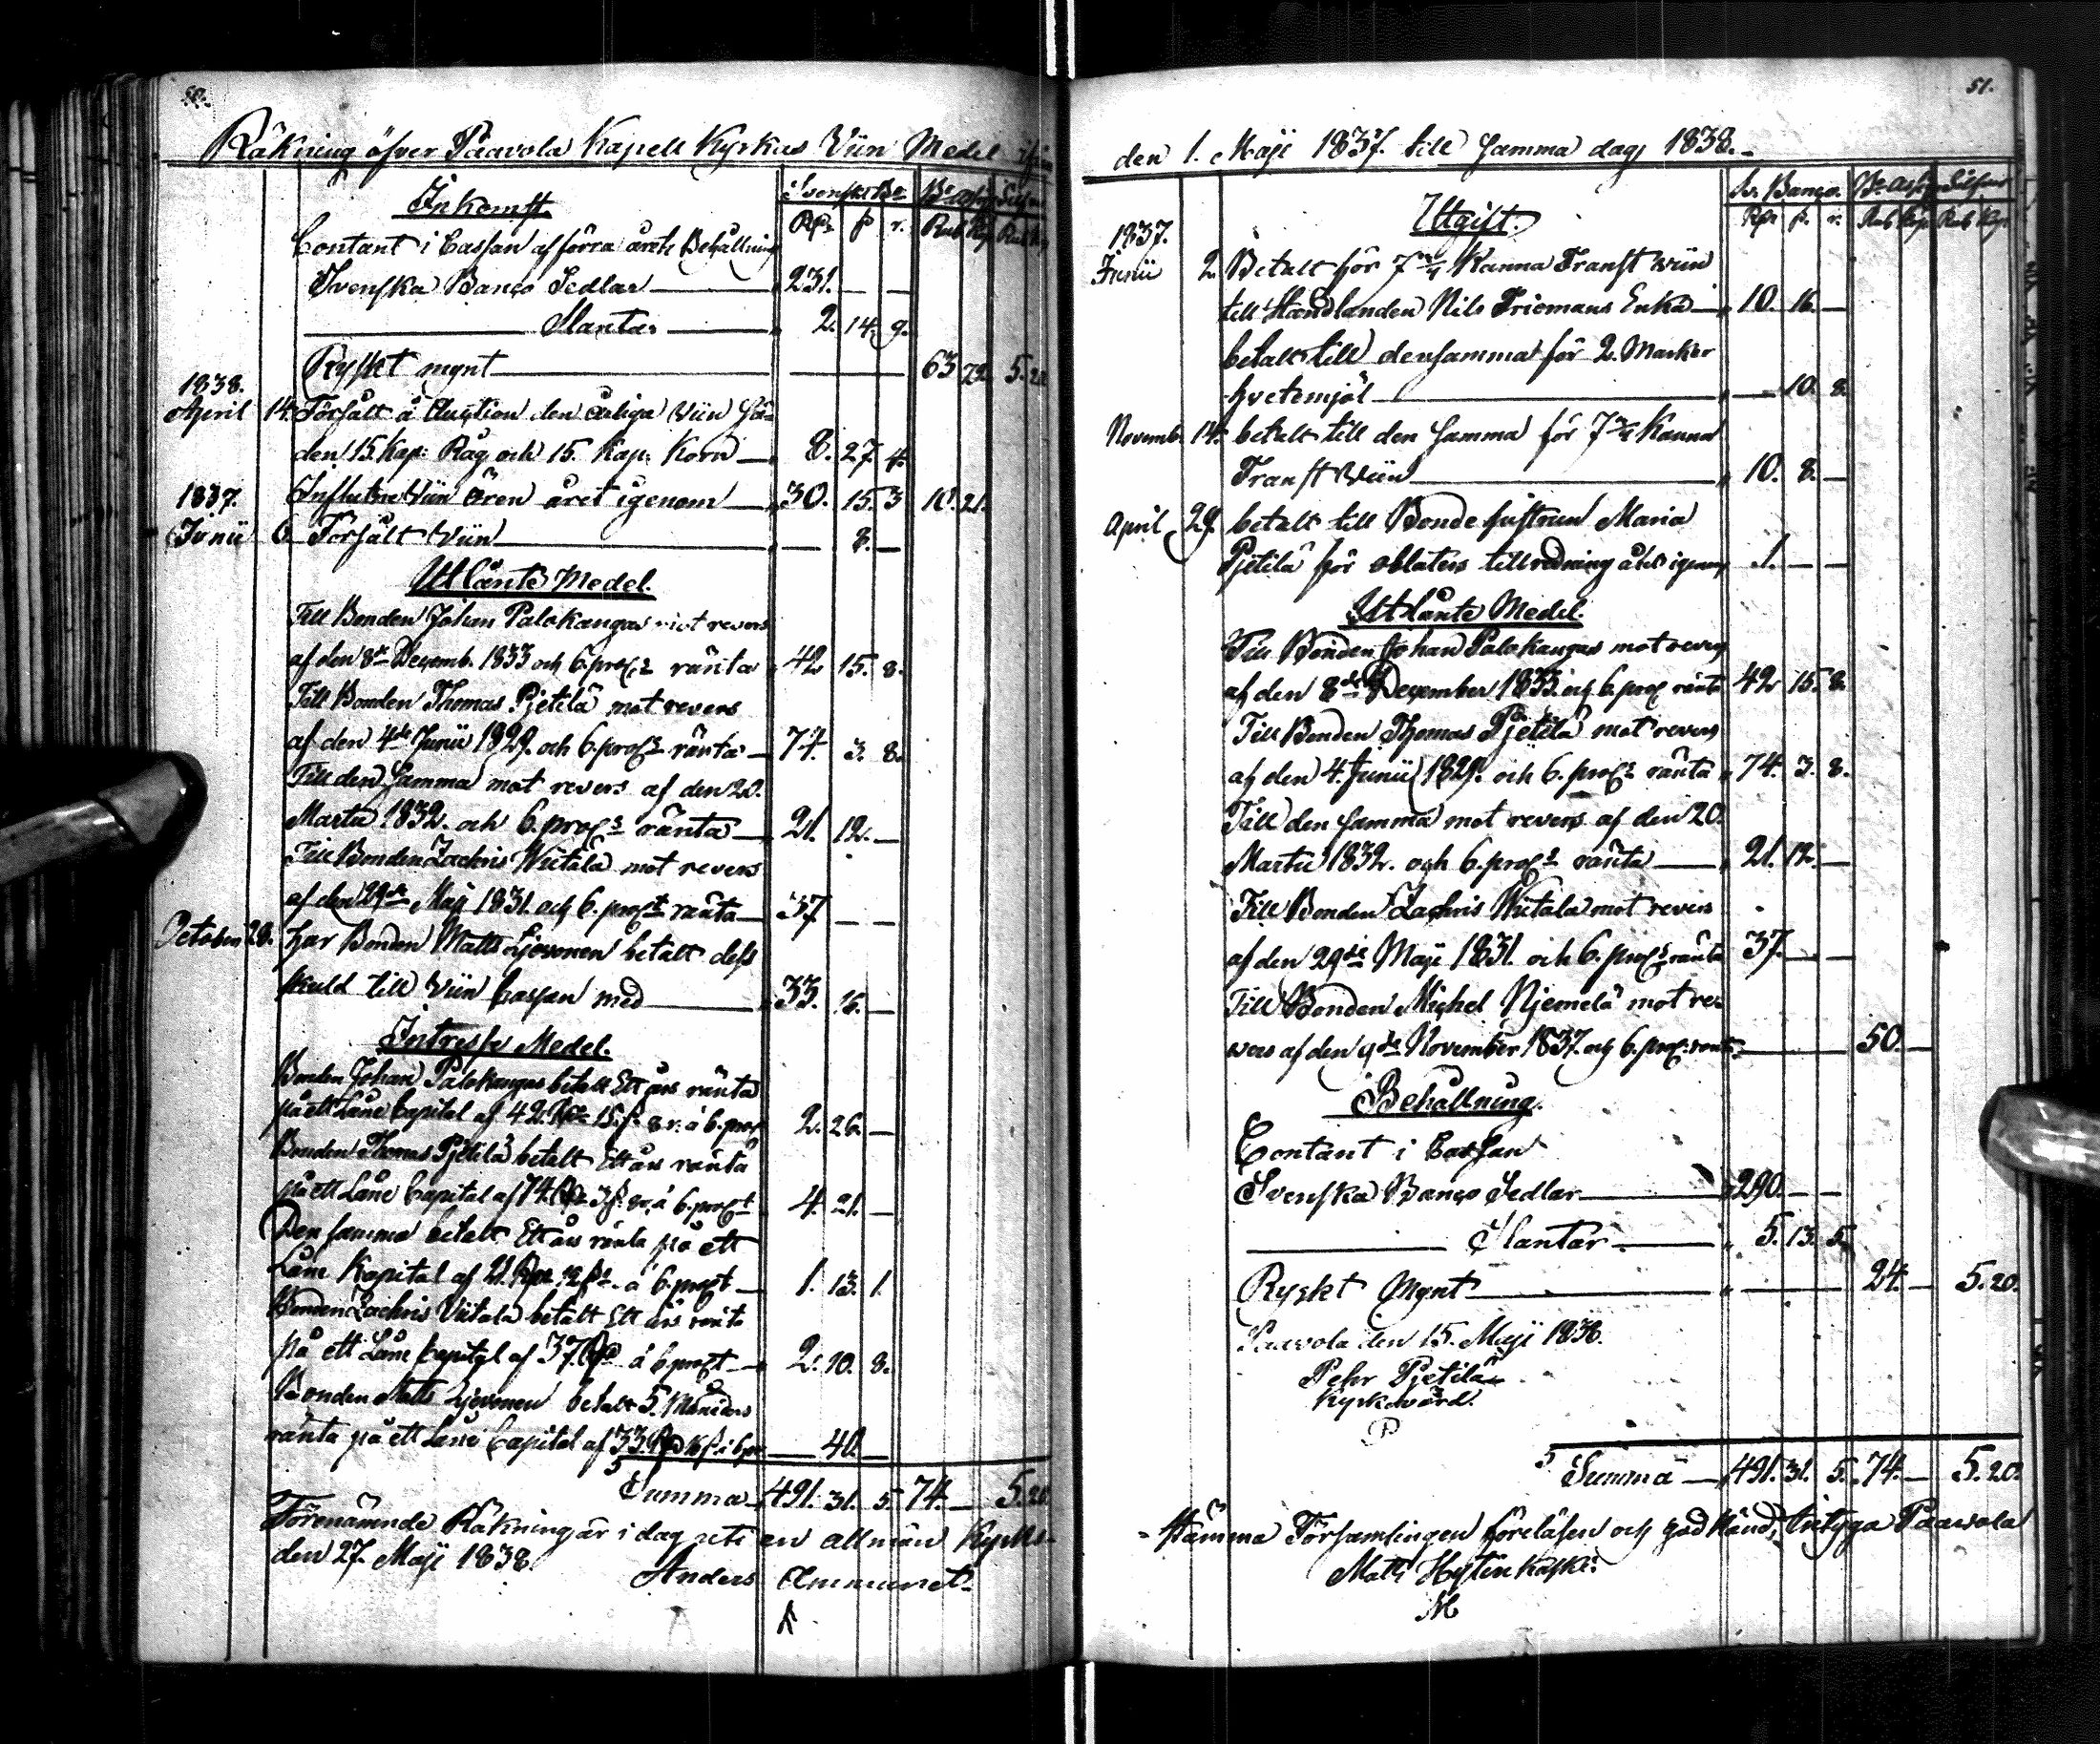 50.
Räkning öfver Paavola Kapell Kyrkas Viin Medel ifrån
Inkomst. Svenskt Bco Bco Ass Silfver
Rdr ß r. Rub Kop Rub Kop
Contant i Cassan af förra årets Behållning
Svenska Banco Sedlar — 231. — —
— Slantar — 2. 14. 9.
Ryskt mynt — 63 79. 5. 20
1838.
April 14. Försålt å Auction den årliga Viin Sä-
den 15. Kap: Råg och 15. Kap: Korn — 8. 27. 4.
1837. Influtne Viin Ören året igenom — 30. 15. 3 10. 21.
Junii 6. Försålt Viin — — 8. —
Utlånte Medel.
Till Bonden Johan Palokangas mot revers
af den 8de Decemb. 1833 och 6. proct ränta 42 15. 8.
Till Bonden Thomas Pjetilä mot revers
af den 4de Junii 1829. och 6. proct ränta — 74. 3. 8.
Till den Samma mot revers af den 20.
Martii 1832. och 6. proct ränta — 21. 12. —
Till Bonden Zachris Wiitala mot revers
af den 29de Maji 1831. och 6. proct ränta — 37 — —
October 28. har Bonden Matts betalt dess
skuld till Viin Cassan med — 33. 16. —
Intresse Medel.
Bonden Johan Palokangas betalt Ett års ränta
på ett Låne Capital af 42. Rdr 15. ß. 8 r. à 6. proct 2. 26. —
Bonden Thomas Pjetilä betalt Ett års ränta
på ett Låne Capital af 74. Rdr 3 ß. 8 r. à 6. proct 4. 21. —
Den samma betalt Ett års ränta på ett
Låne Kapital af 21. Rdr 12 ß. à 6. proct — 1. 13. 1.
Bonden Zachris Viitala betalt Ett års ränta
på ett Låne Capital af 37. Rdr à 6 proct — 2. 10. 8.
Bonden Matts betalt 5. Månaders
ränta på ett Låne Capital af 33. Rdr 16 ß. à 6 pr — 40. —
Summa — 491. 31. 5. 74. — 5. 20
Förenämnde Räkning är i dag uti en allmän Kyrko-
den 27. Maji 1838.
Anders Ammunet
A
51.
den 1. Maji 1837. till samma dag 1838. —
Utgift. Sv. Banco. Bco Ass Silfver
Rdr ß. r. Rub Kop Rub Kop
1837.
Junii 2. Betalt för 7 Kanna Franst wiin
till Handlanden Nils Friemans Enka — 10. 16. —
betalt till densamma för 2. Marker
hvetemjöl — — 10. 8.
Novemb. 14. betalt till den samma för 7 Kanna
Franst Wiin — 10. 8. —
April 29. betalt till Bonde hustrun Maria
Pjetilä för oblaters tillredning året igenom 1. — —
Utlånte Medel.
Till Bonden Johan Palokangas mot revers
af den 8de December 1833. och 6. proct ränta 42 15. 8.
Till Bonden Thomas Pjetilä mot revers
af den 4. Junii 1829. och 6. proct ränta 74. 3. 8.
Till den samma mot revers af den 20.
Martii 1832. och 6. proct ränta — 21. 12. —
Till Bonden Zachris Wiitala mot revers
af den 29de Maji 1831. och 6. proct ränta 37. — —
Till Bonden Michel Njemelä mot re-
vers af den 9de November 1837. och 6. proct: ränta — 50. —
Behållning.
Contant i Cassan
Svenska Banco Sedlar — 290. — —
— Slantar — 5. 13. 5.
Ryskt Mynt — 24. — 5. 20.
Paavola den 15. Maji 1838.
Pehr Pjetilä
Kyrkovärd.
P
Summa — 491. 31. 5. 74. — 5. 20.
-stämma Församlingen föreläsen och god känd, intyga Paavola
Matts Hylinkoski
M